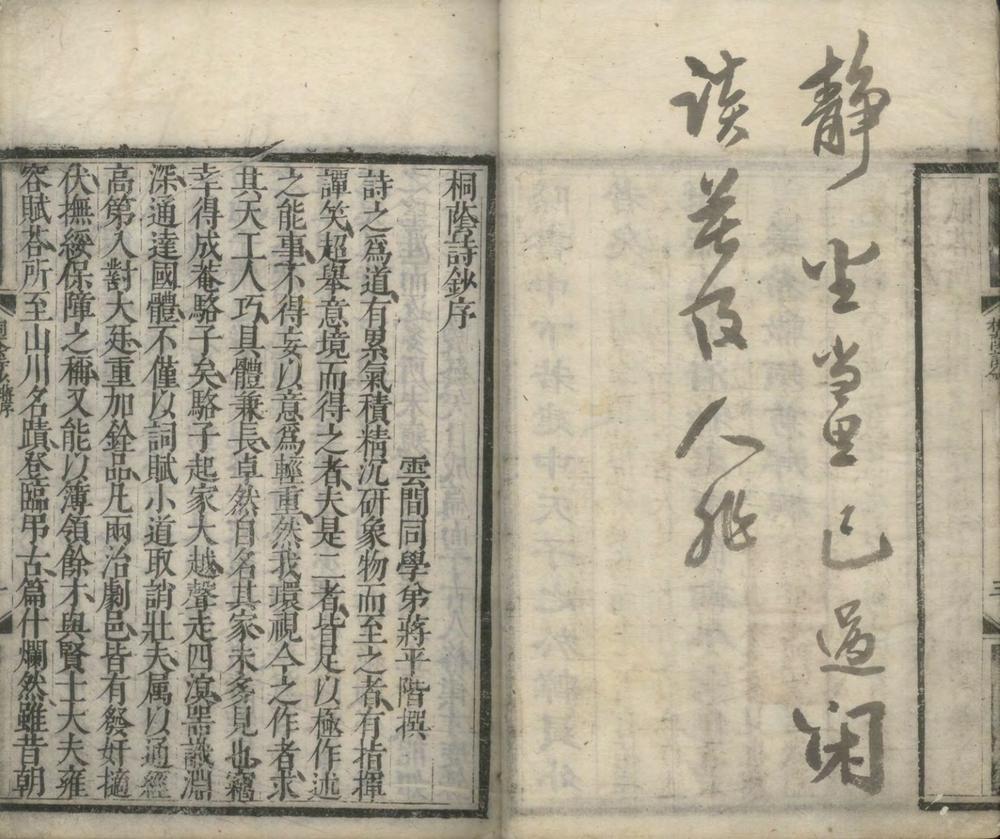 静坐當思已過闲
談莫及人非
桐蔭詩鈔序
雲間同學弟蔣平階撰
詩之爲道有累氣積精沉研象物而至之者有指揮
譚笑超舉意境而得之者夫是二者皆足以極作述
之能事不得妄以意爲輕重然我環視今之作者求
其天工人巧具體兼長卓然自名其家未多見也竊
幸得成菴駱子矣駱子起家大越聲走四溟噐識淵
深通達國體不僅以詞賦小道取誚壯夫属以通經
高第入對大廷重加銓品凡兩治劇邑皆有發奸擿
伏撫綏保障之稱又能以簿領餘才與賢士大夫雍
容賦荅所至山川名蹟登臨弔古篇什爛然雖昔朝